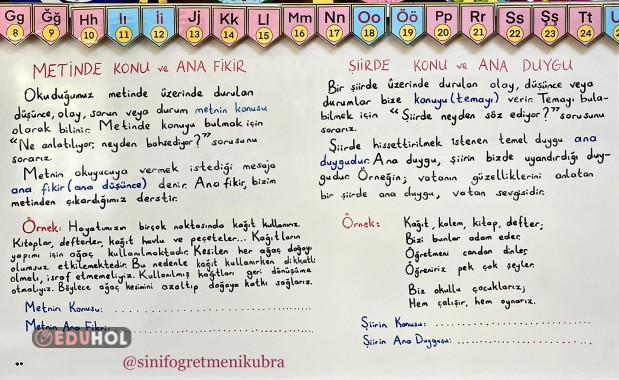 Gg Ğğ Hh Iı İi Jj Kk Ll Mm Nn Oo Öö Pp Rr Ss Şş Tt
8 9 10 11 12 13 14 15 16 17 18 19 20 21 22 23 24
METİNDE KONU ve ANA FİKİR
Okuduğumuz metinde üzerinde durulan
düşünce, olay, sorun veya durum metnin konusu
olarak bilinir. Metinde konuyu bulmak için
"Ne anlatılıyor, neyden bahsediyor?" sorusunu
sorarız.
Metnin okuyucuya vermek istediği mesaja
ana fikir (ana düşünce) denir. Ana fikir, bizim
metinden çıkardığımız derstir.
Örnek: Hayatımızın birçok noktasında kağıt kullanırız.
Kitaplar, defterler, kağıt havlu ve peçeteler... Kağıtların
yapımı için ağaç kullanılmaktadır. Kesilen her ağaç doğayı
olumsuz etkilemektedir. Bu nedenle kağıt kullanırken dikkatli
olmalı, israf etmemeliyiz. Kullanılmış kağıtları geri dönüşüme
atmalıyız. Böylece ağaç kesimini azaltıp doğaya katkı sağlarız.
Metnin Konusu:
Metnin Ana Fikri:
ŞİİRDE KONU ve ANA DUYGU
Bir şiirde üzerinde durulan olay, düşünce veya
durumlar bize konuyu (temayı) verir. Temayı bula-
bilmek için "Şiirde neyden söz ediyor?" sorusunu
sorarız.
Şiirde hissettirilmek istenen temel duygu ana
duygudur. Ana duygu, şiirin bizde uyandırdığı duy-
gudur. Örneğin; vatanın güzelliklerini anlatan
bir şiirde ana duygu, vatan sevgisidir.
Örnek:
Kağıt, kalem, kitap, defter;
Bizi bunlar adam eder.
Öğretmeni candan dinler,
Öğreniriz pek çok şeyler.
Biz okullu çocuklarız;
Hem çalışır, hem oynarız.
Şiirin Konusu:
Şiirin Ana Duygusu:
EDUHOL
@sinifogretmenikubra